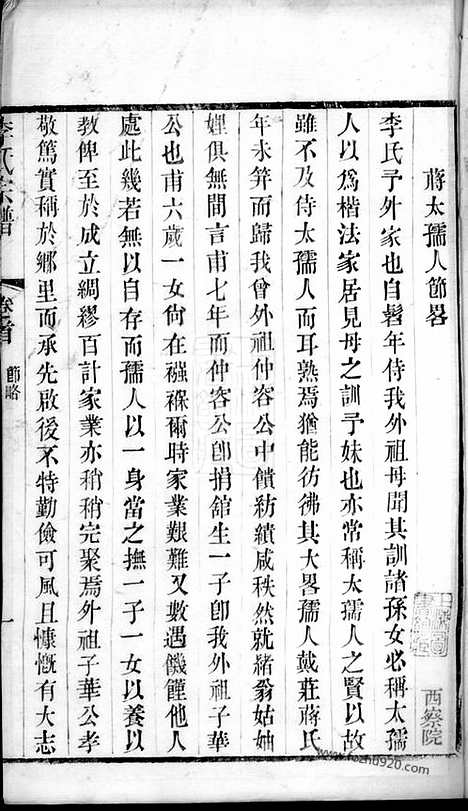 蔣太孺人節畧
李氏予外家也自髫年侍我外祖母聞其訓諸孫女必稱太孺
人以爲楷法家居見母之訓予妹也亦常稱太孺人之賢以故
雖不及侍太孺人而耳熟焉猶能彷彿其大畧孺人戴莊蔣氏
年未笄而歸我曾外祖仲容公中饋紡績咸秩然就緒翁姑妯
娌俱無間言甫七年而仲容公卽捐舘生一子卽我外祖子華
公也甫六歲一女尙在襁褓爾時家業艱難又數遇饑饉他人
處此幾若無以自存而孺人以一身當之撫一子一女以養以
教俾至於成立綢繆百計家業亦稍稍完聚焉外祖子華公孝
敬篤實稱於鄉里而承先啟後不特勤儉可風且慷慨有大志
李氏宗譜
卷首
節略
一
西察院
www.fozhu920.com